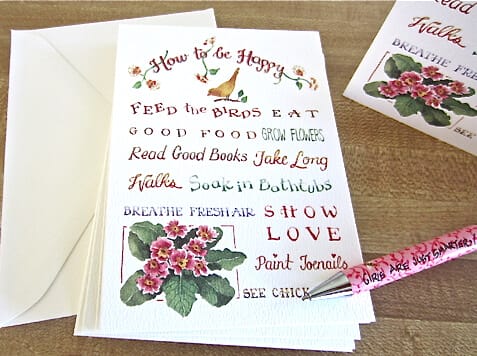 How to be Happy
FEED the BIRDS EAT
GOOD FOOD GROW FLOWERS
Read Good Books Take Long
Walks Soak in Bathtubs
BREATHE FRESH AIR SHOW
LOVE
Paint Toenails
SEE CHICK
Read
Walks
BREATHE FRESH
SEE
GIRLS ARE JUST SMARTER